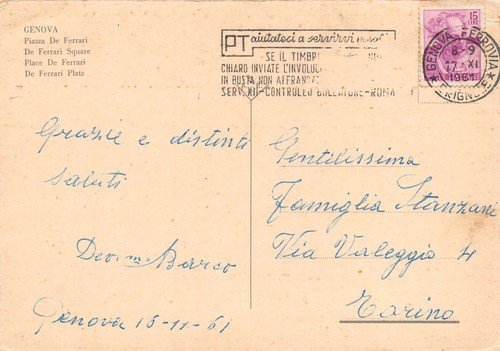 GENOVA
Piazza De Ferrari
De Ferrari Square
Place De Ferrari
De Ferrari Platz
PT aiutateci a servirvi
SE IL TIMBRO
CHIARO INVIATE L'INVOLUCRO
IN BUSTA NON AFFRANCATA
SERV. XII-CONTROLLO BOLLATURE-ROMA
15
GENOVA FERROVIA
8-9
17 XI
1961
BRIGNOLE
Grazie e distinti
saluti
Dev.mo Barco
Genova 16-11-61
Gentilissima
Famiglia Stanzani
Via Valeggio 4
Torino